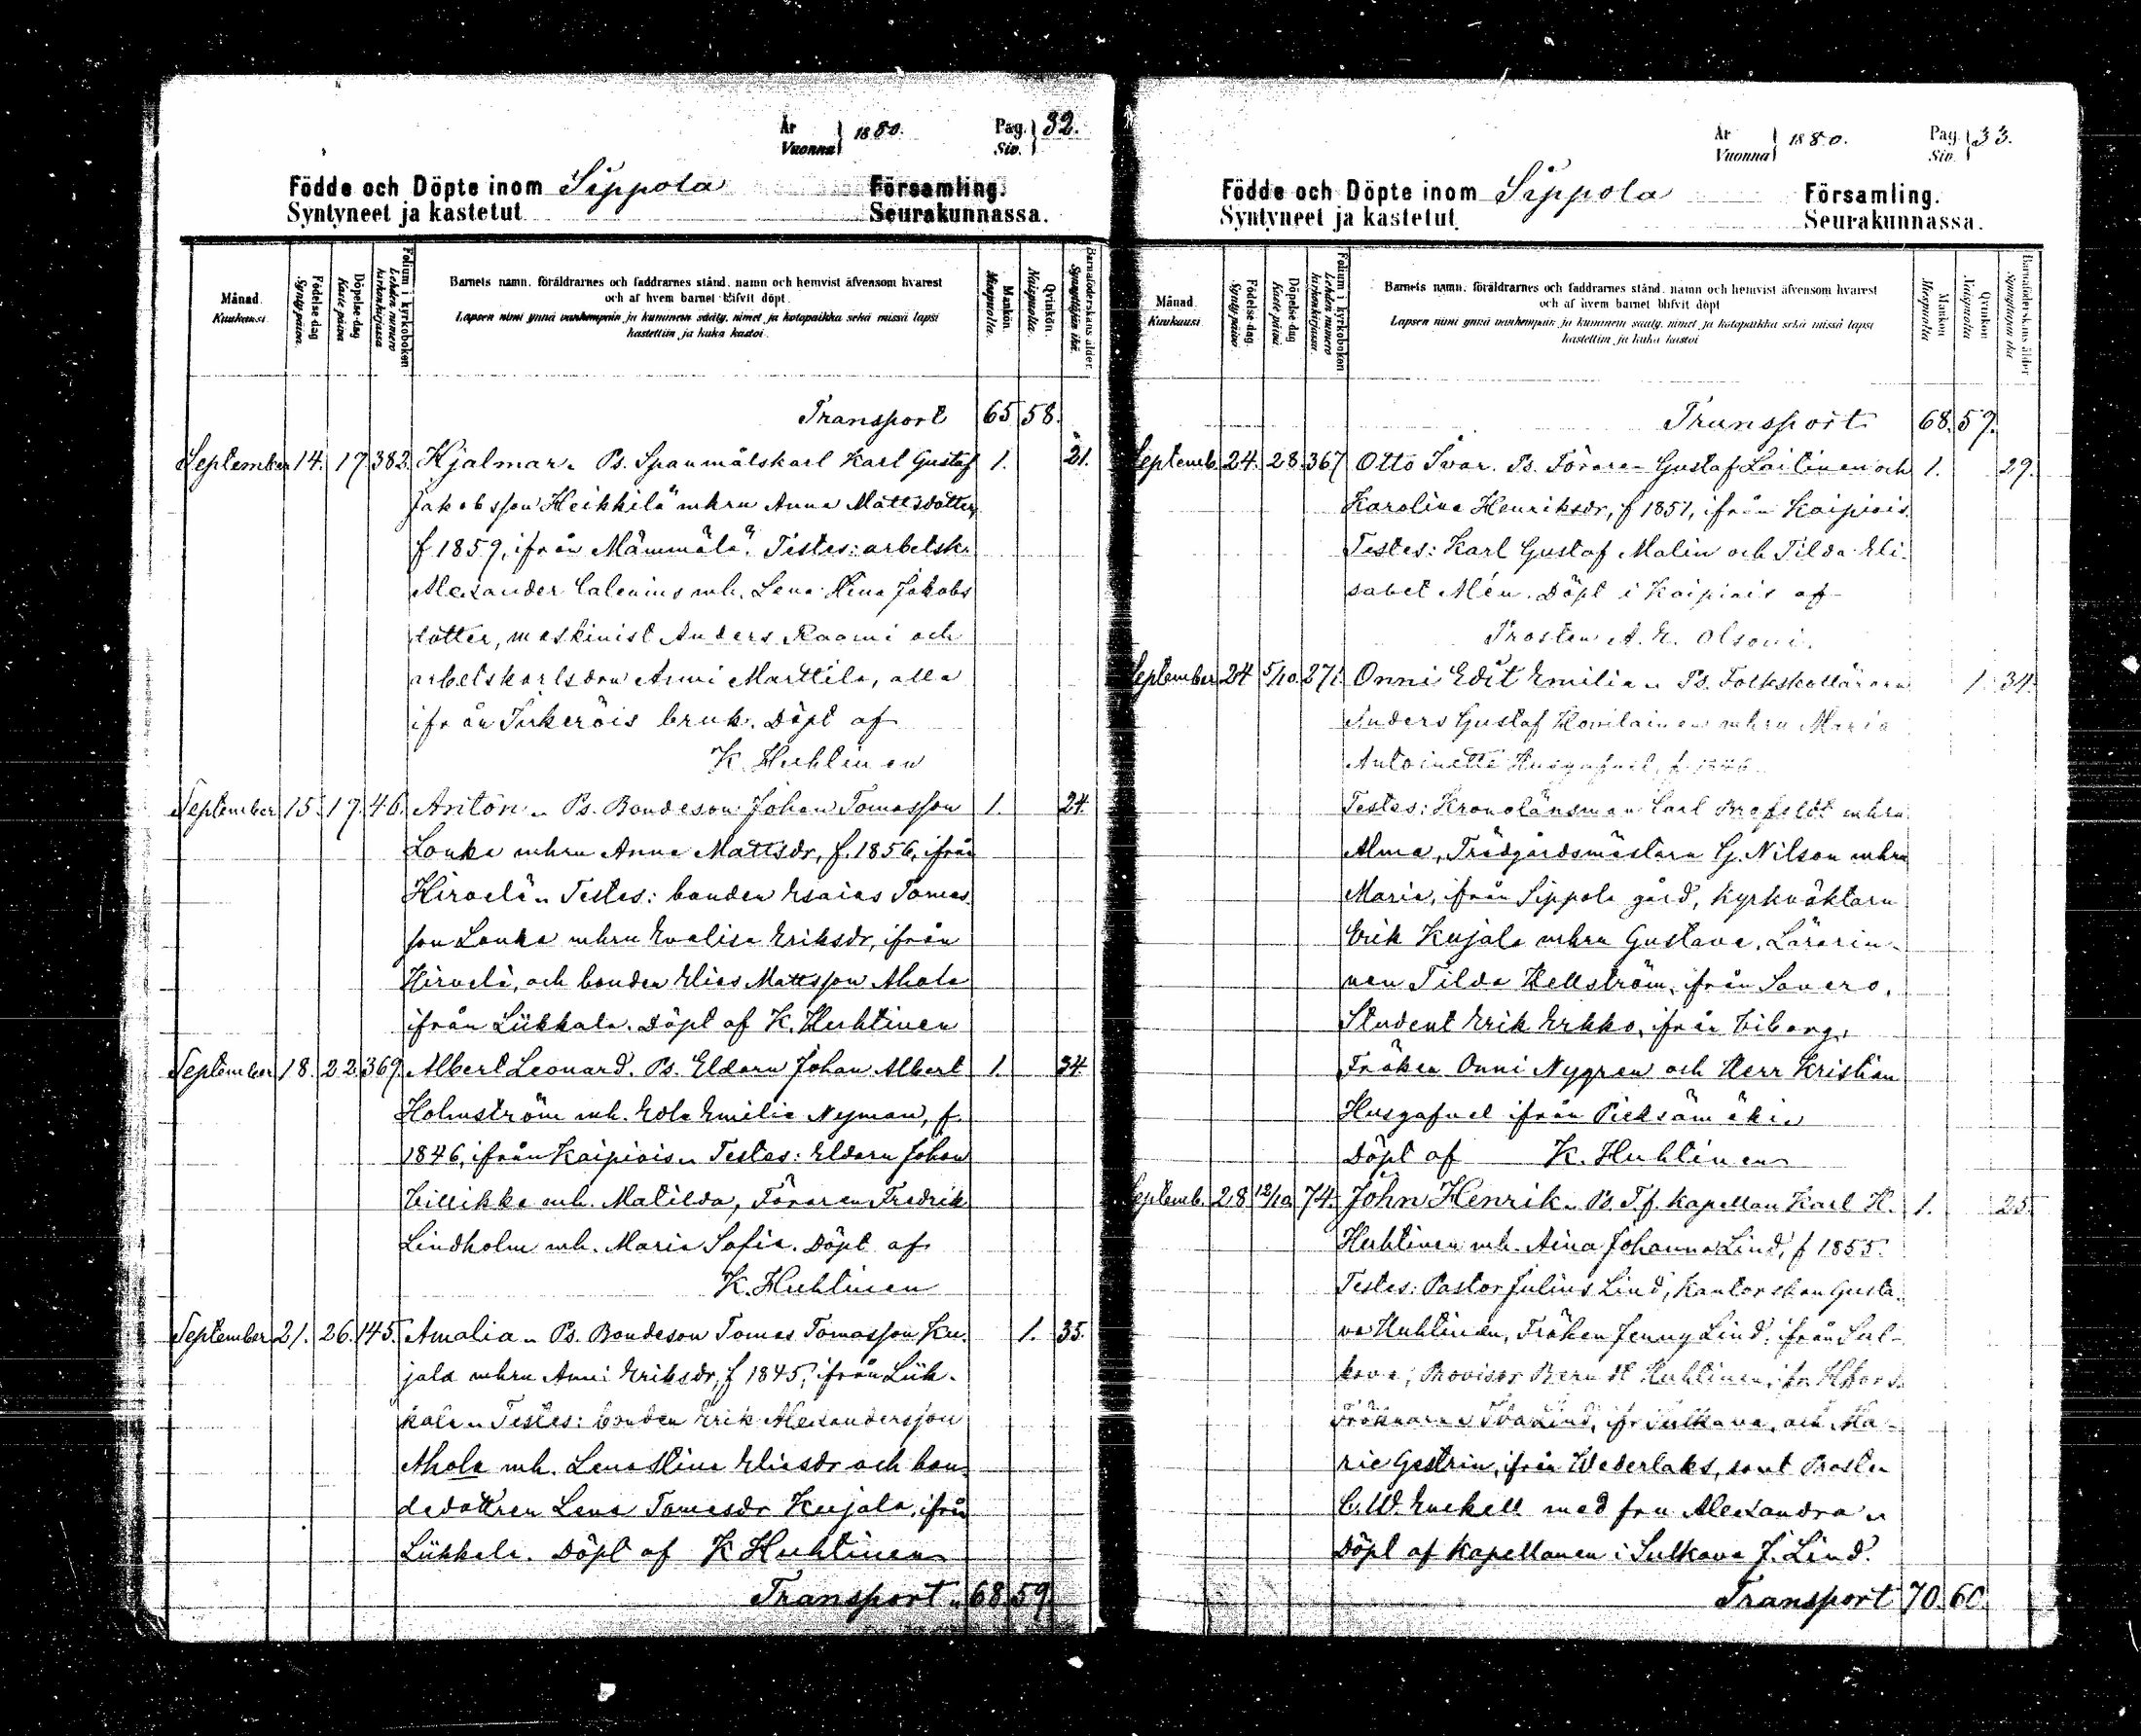 År
Vuonna } 1880.
Pag.
Siv. } 32.
Födde och Döpte inom Sippola Församling.
Syntyneet ja kastetut Seurakunnassa.
Månad.
Kuukausi.
Födelse dag
Synty päivä.
Döpelse dag
Kaste päivä
Folium i kyrkoboken
Lehden numero kirkonkirjassa
Barnets namn, föräldrarnes och faddrarnes stånd, namn och hemvist äfvensom hvarest
och af hvem barnet blifvit döpt.
Lapsen nimi ynnä vanhempain ja kummein sääty, nimet ja kotopaikka sekä missä lapsi
kastettiin ja kuka kastoi.
Mankön.
Miespuolia.
Qvinkön.
Naispuolia.
Barnaföderskans ålder.
Synnyttäjän ikä.
Transport 65 58.
September 14. 17. 382. Hjalmar. Ps. Spanmålskarl Karl Gustaf 1. 21.
Jakobsson Heikkilä mhru Anna Mattsdotter,
f. 1859, ifrån Mämmälä. Testes: arbetsk.
Alexander Calenius mh. Lena Stina Jakobs
dotter, maskinist Anders Raami och
arbetskarlsdrn Anni Marttila, alla
ifrån Inkeröis bruk. Döpt af
K. Huhtinen
September 15. 17. 46. Anton. Ps. Bondeson Johan Tomasson 1. 24.
Louka mhru Anna Mattsdr, f. 1856, ifrån
Hirvelä. Testes: bonden Esaias Tomas
son Louka mhru Evalisa Eriksdr, ifrån
Hirvelä, och bonden Elias Mattsson Ahola
ifrån Liikkala. Döpt af K. Huhtinen
September 18. 22. 369. Albert Leonard. Ps. Eldarn Johan Albert 1. 34
Holmström mh. Eda Emilia Nyman, f.
1846, ifrån Kaipiais. Testes: Eldarn Johan
Villikka mh. Matilda, Föraren Fredrik
Lindholm mh. Maria Sofia. Döpt af
K. Huhtinen
September 21. 26. 145. Amalia. Ps. Bondeson Tomas Tomasson Ku- 1. 35.
jala mhru Anni Eriksdr, f 1845, ifrån Liik-
kala. Testes: bonden Erik Alexandersson
Ahola mh. Lena Stina Eliasdr och bon
dedottren Lena Tomasdr Kujala, ifrån
Liikkala. Döpt af K Huhtinen
Transport 68 59
År
Vuonna } 1880.
Pag.
Siv. } 33.
Födde och Döpte inom Sippola Församling.
Syntyneet ja kastetut Seurakunnassa.
Månad.
Kuukausi
Födelse dag.
Synty päivä.
Döpelse dag
Kaste päivä.
Folium i kyrkoboken
Lehden numero kirkonkirjassa.
Barnets namn, föräldrarnes och faddrarnes stånd, namn och hemvist äfvensom hvarest
och af hvem barnet blifvit döpt
Lapsen nimi ynnä vanhempain ja kummein sääty, nimet ja kotopaikka sekä missä lapsi
kastettiin ja kuka kastoi
Mankön
Miespuolia
Qvinkön
Naispuolia
Barnaföderskans ålder
Synnyttäjän ikä
Transport 68. 59.
Septemb. 24. 28. 367 Otto Ivar. Ps. Föraren Gustaf Laitinen och 1. 29.
Karolina Henriksdr, f 1851, ifrån Kaipiais.
Testes: Karl Gustaf Malin och Tilda Eli-
sabet Alén. Döpt i Kaipiais af
Prosten A. E. Olsoni.
September 24 5/10. 271. Onni Edit Emilia. Ps. Folkskollärarn 1. 34.
Anders Gustaf Hovilainen mhru Maria
Antoinetta Husgafvel, f. 1846.
Testes: Kronolänsman Carl Brofeldt mhru
Alma, Trädgårdsmästarn G. Nilson mhru
Maria, ifrån Sippola gård, Kyrkväktarn
Erik Kujala mhru Gustava, Lärarin-
nan Tilda Hellström, ifrån Savero,
Student Erik Erkko, ifrån Viborg,
Fröken Onni Nygren och Herr Kristian
Husgafvel ifrån Pieksämäki.
Döpt af K. Huhtinen
Septemb. 28 12/10. 74. John Henrik. Ps. T.f. Kapellan Karl H. 1. 25.
Huhtinen mh. Aina Johanna Lind, f 1855.
Testes: Pastor Julius Lind, Kantorskan Gusta-
va Huhtinen, Fröken Jenny Lind, ifrån Sul-
kava, Provisor Bernd Huhtinen, ifr. Hfors.
Fröknarna Eva Lind, ifr Sulkava, och Ma-
rie Gestrin, ifrån Wederlaks, samt Prosten
C. W. Enckell med fru Alexandra.
Döpt af Kapellanen i Sulkava J. Lind.
Transport 70. 60.